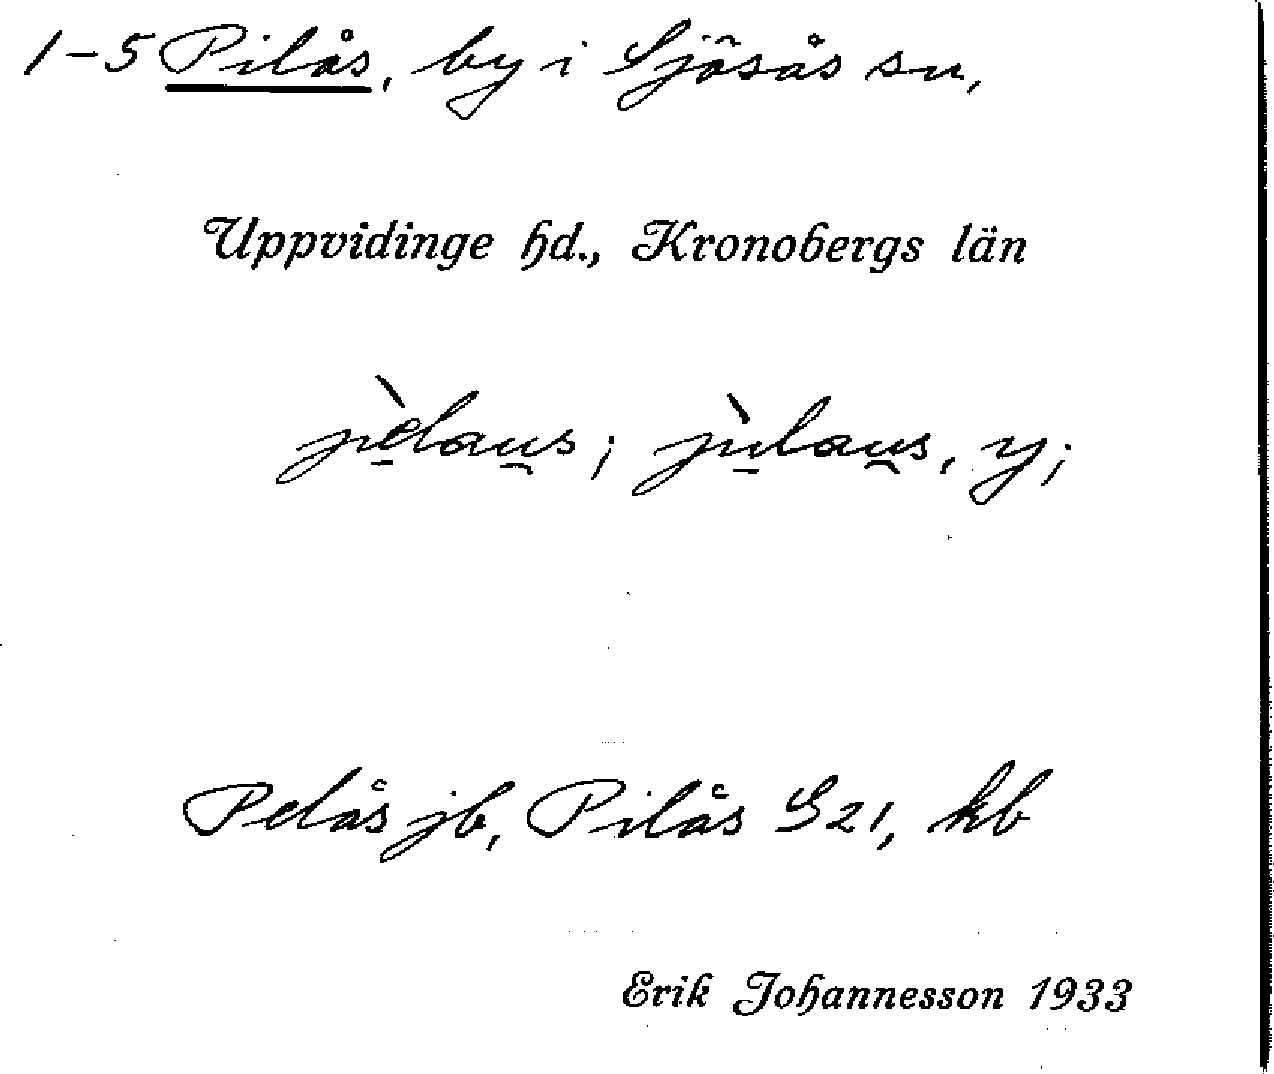 1-5 Pilås, by i Sjösås sn,
Uppvidinge hd., Kronobergs län
pèlau̯s; pìlau̯s, y;
Pelås jb, Pilås S21, kb
Erik Johannesson 1933